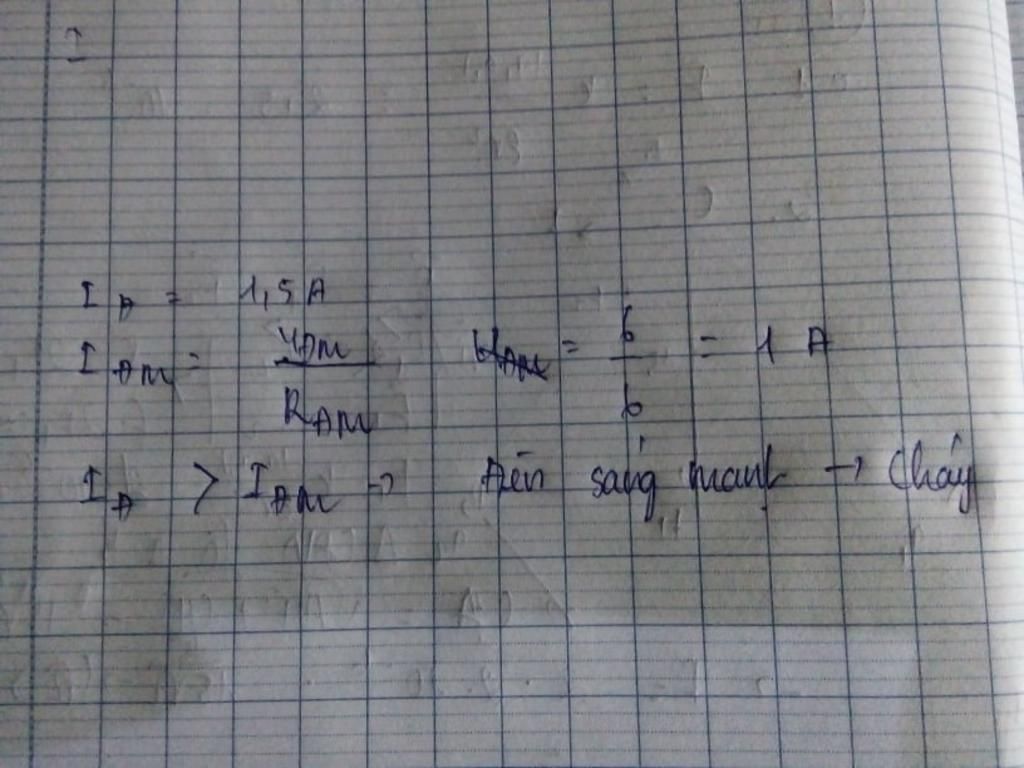 I
I_Đ = 1,5 A
I_ĐM = U_ĐM / R_ĐM = 6 / 6 = 1 A
I_Đ > I_ĐM → Đèn sáng mạnh → Cháy